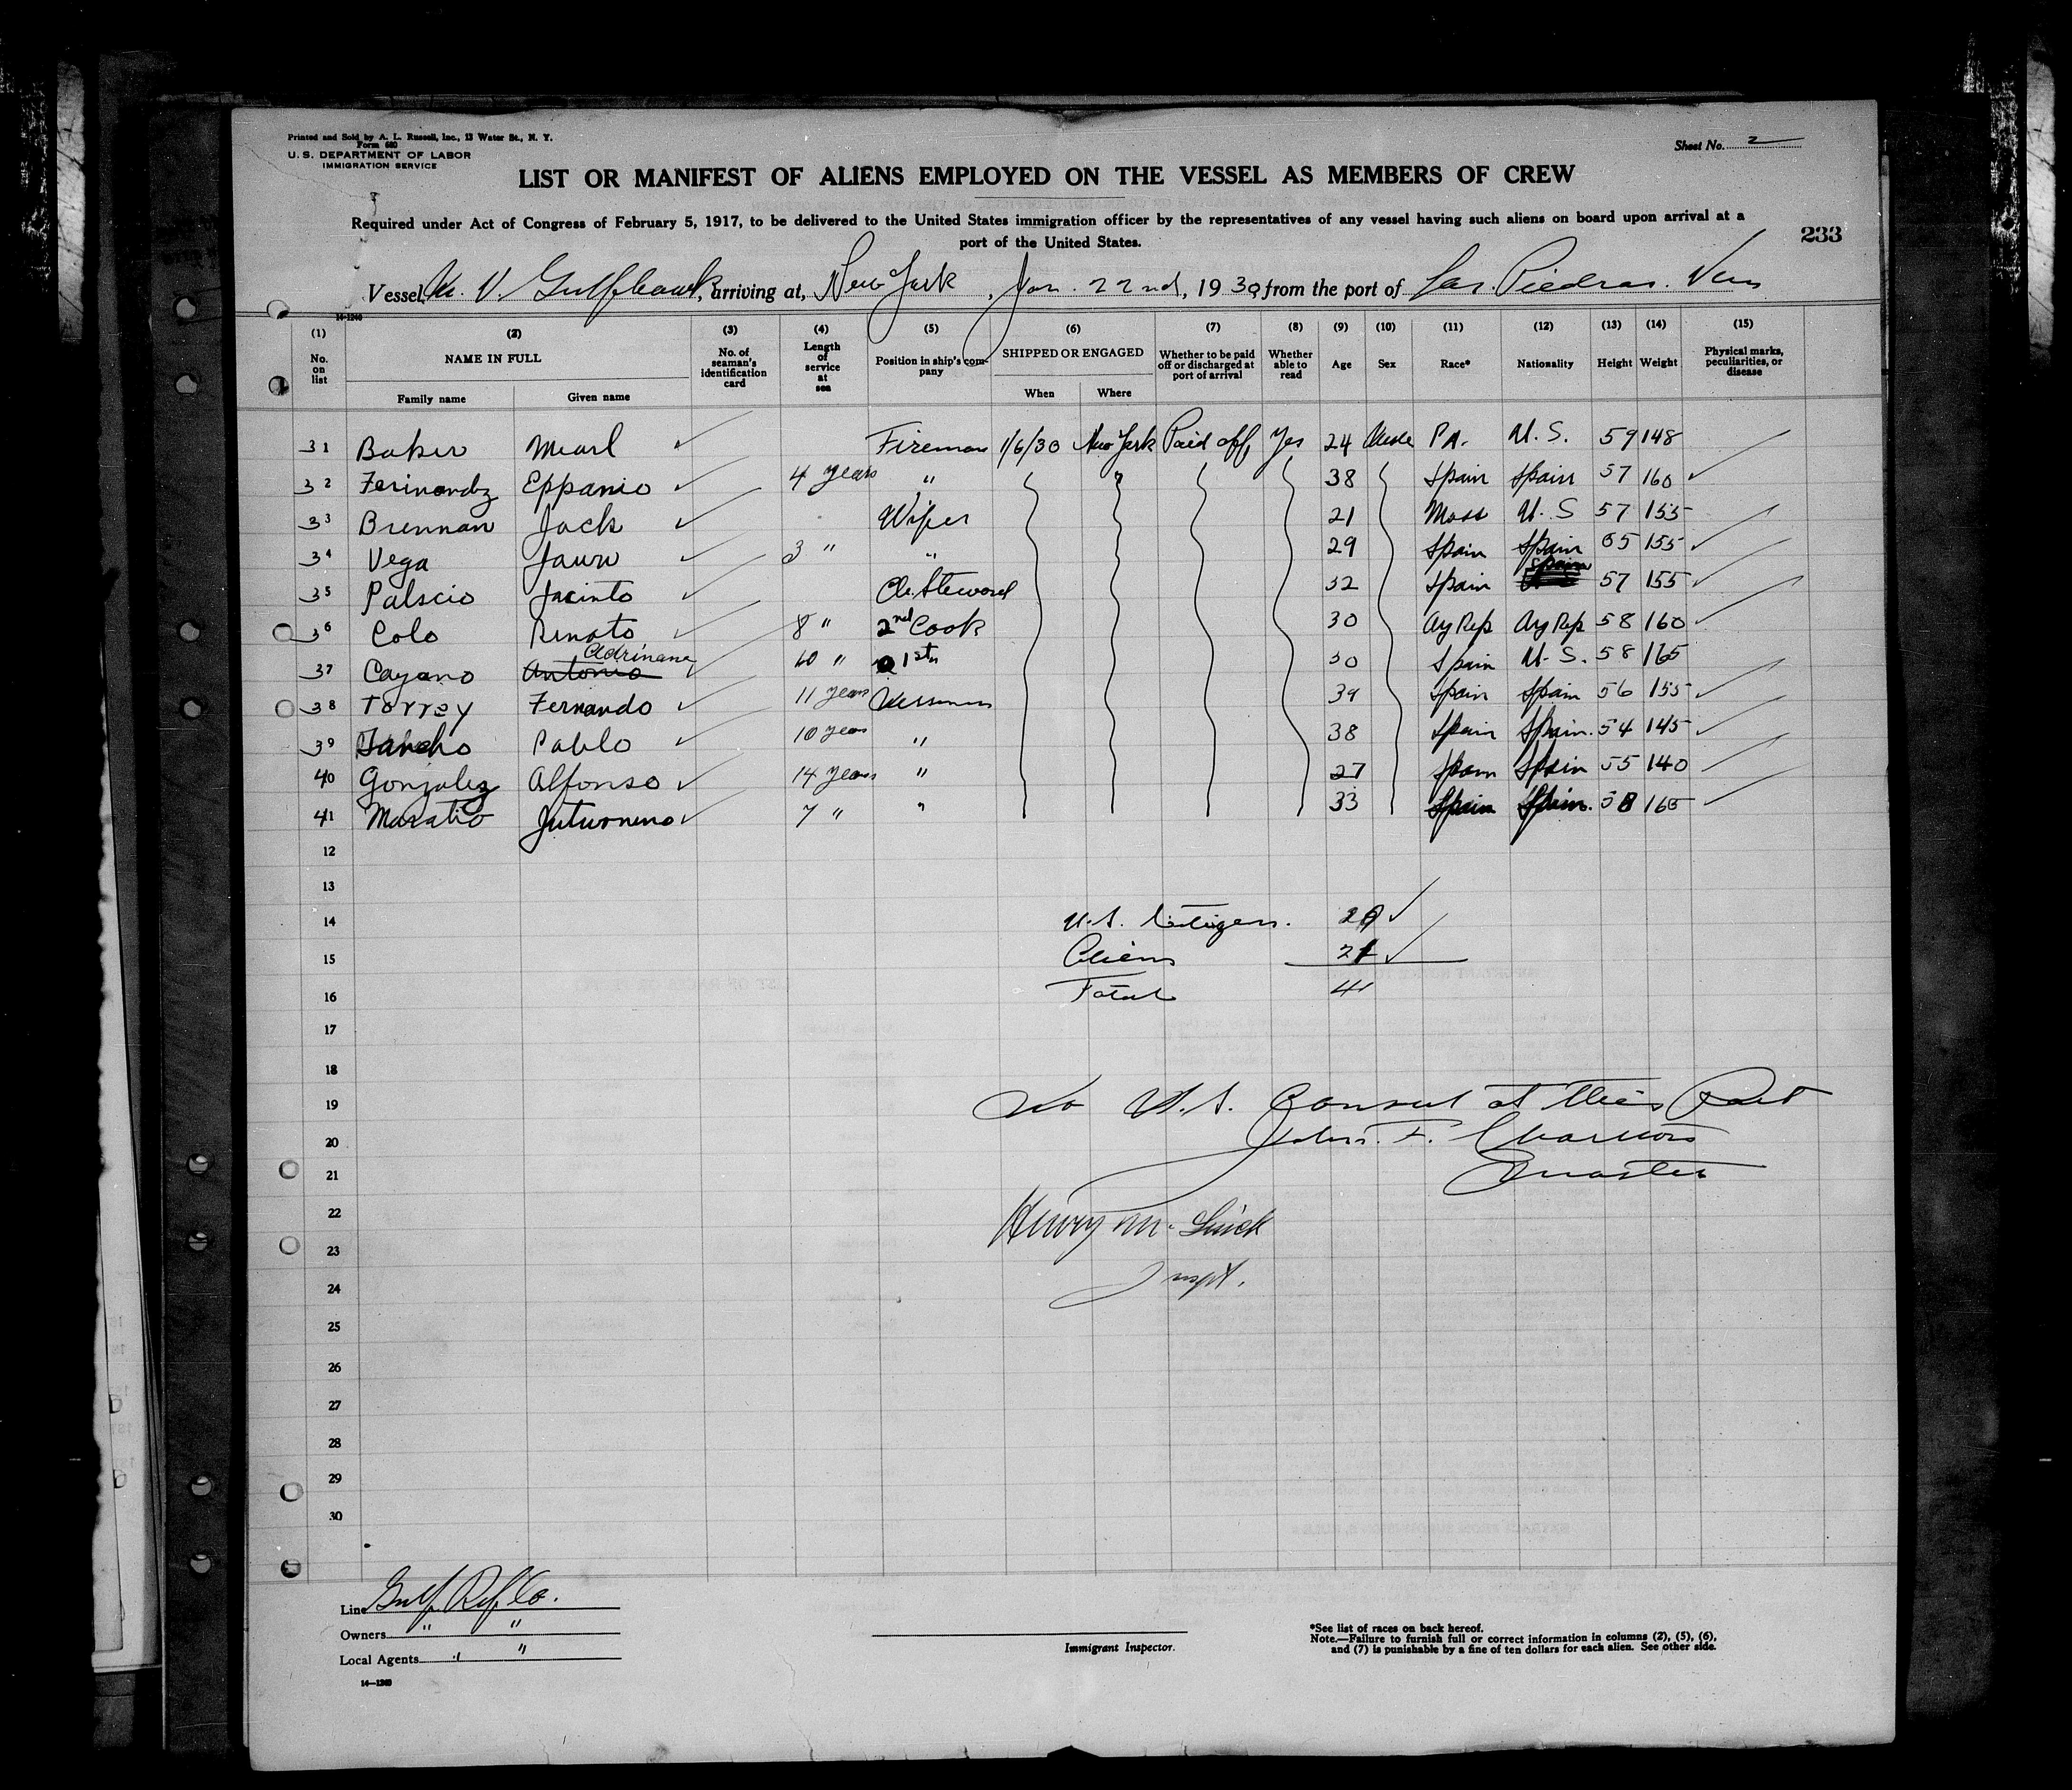 Printed and Sold by A. L. Russell, Inc., 13 Water St., N. Y.
Form 680
U. S. DEPARTMENT OF LABOR
IMMIGRATION SERVICE
Sheet No. 2
LIST OR MANIFEST OF ALIENS EMPLOYED ON THE VESSEL AS MEMBERS OF CREW
Required under Act of Congress of February 5, 1917, to be delivered to the United States immigration officer by the representatives of any vessel having such aliens on board upon arrival at a
port of the United States.
233
Vessel M. V. Gulfhawk, arriving at, New York, Jan. 22nd, 1930, from the port of Las Piedras. Ven
14-1240
(1) (2) (3) (4) (5) (6) (7) (8) (9) (10) (11) (12) (13) (14) (15)
No. on list NAME IN FULL Family name Given name No. of seaman's identification card Length of service at sea Position in ship's company SHIPPED OR ENGAGED When Where Whether to be paid off or discharged at port of arrival Whether able to read Age Sex Race* Nationality Height Weight Physical marks, peculiarities, or disease
31 Baker Mearl Fireman 1/6/30 New York Paid off Yes 24 Male PA. U.S. 59 148
32 Ferinandz Eppanio 4 years " " 38 Spain Spain 57 160
33 Brennan Jack Wiper 21 Mass U.S 57 155
34 Vega Jaun 3 " " 29 Spain Spain 65 155
35 Palscio Jacinto Ch. Steward 32 Spain Spain 57 155
36 Colo Renato 8 " 2nd Cook 30 Ag Rep Ag Rep 58 160
37 Cayano Antonio Adrinane 10 " 1st " 30 Spain U.S. 58 165
38 Torrey Fernando 11 years Messman 39 Spain Spain 56 155
39 Pablo 10 years " 38 Spain Spain. 54 145
40 Gonzalez Alfonso 14 years " 27 Spain Spain 55 140
41 Juturnino 7 " " 33 Spain Spain. 58 165
12
13
14 U.S. Citizens.
15 Aliens 21
16 Total 41
17
18
19 No U.S. Consul at this Port
20 John. F.
21 Master
22 Henry M.
23
24 Inspt.
25
26
27
28
29
30
Line Gulf Ref. Co.
Owners " "
Local Agents " "
14—1240
Immigrant Inspector.
*See list of races on back hereof.
Note.—Failure to furnish full or correct information in columns (2), (5), (6),
and (7) is punishable by a fine of ten dollars for each alien. See other side.